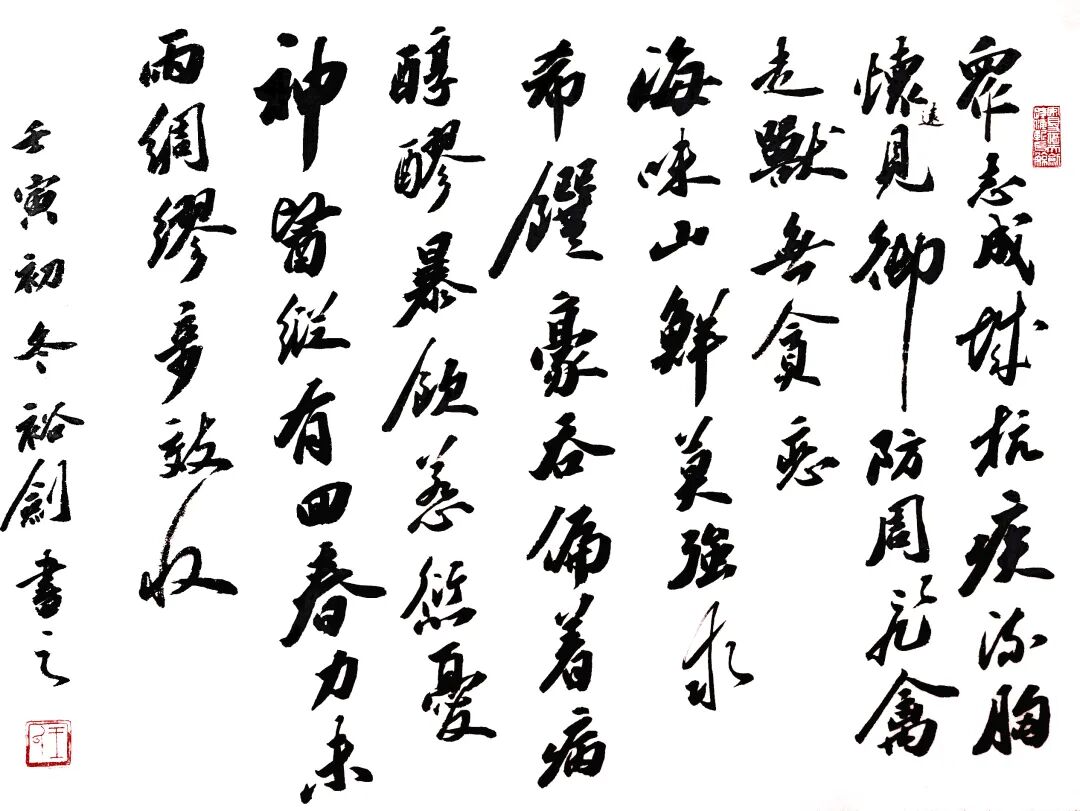 眾志成城抗疾流胸
懷遠見御防周飛禽
走獸無貪戀
海味山鮮莫強求
希饌豪吞偏着病
醇醪暴飲惹愆憂
神醫縱有回春力未
雨綢繆奇效收
壬寅初冬裕劍書之